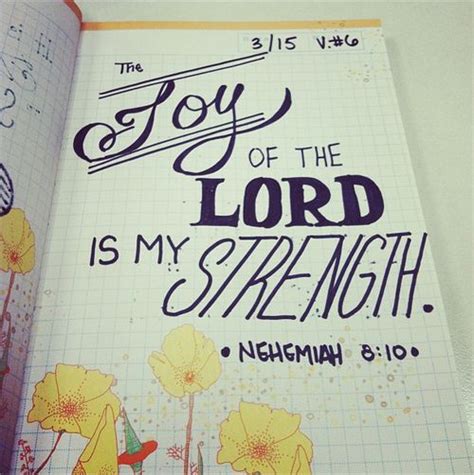 3/15 V.#6
The
Joy
OF THE
LORD
IS MY STRENGTH.
• NEHEMIAH 8:10 •